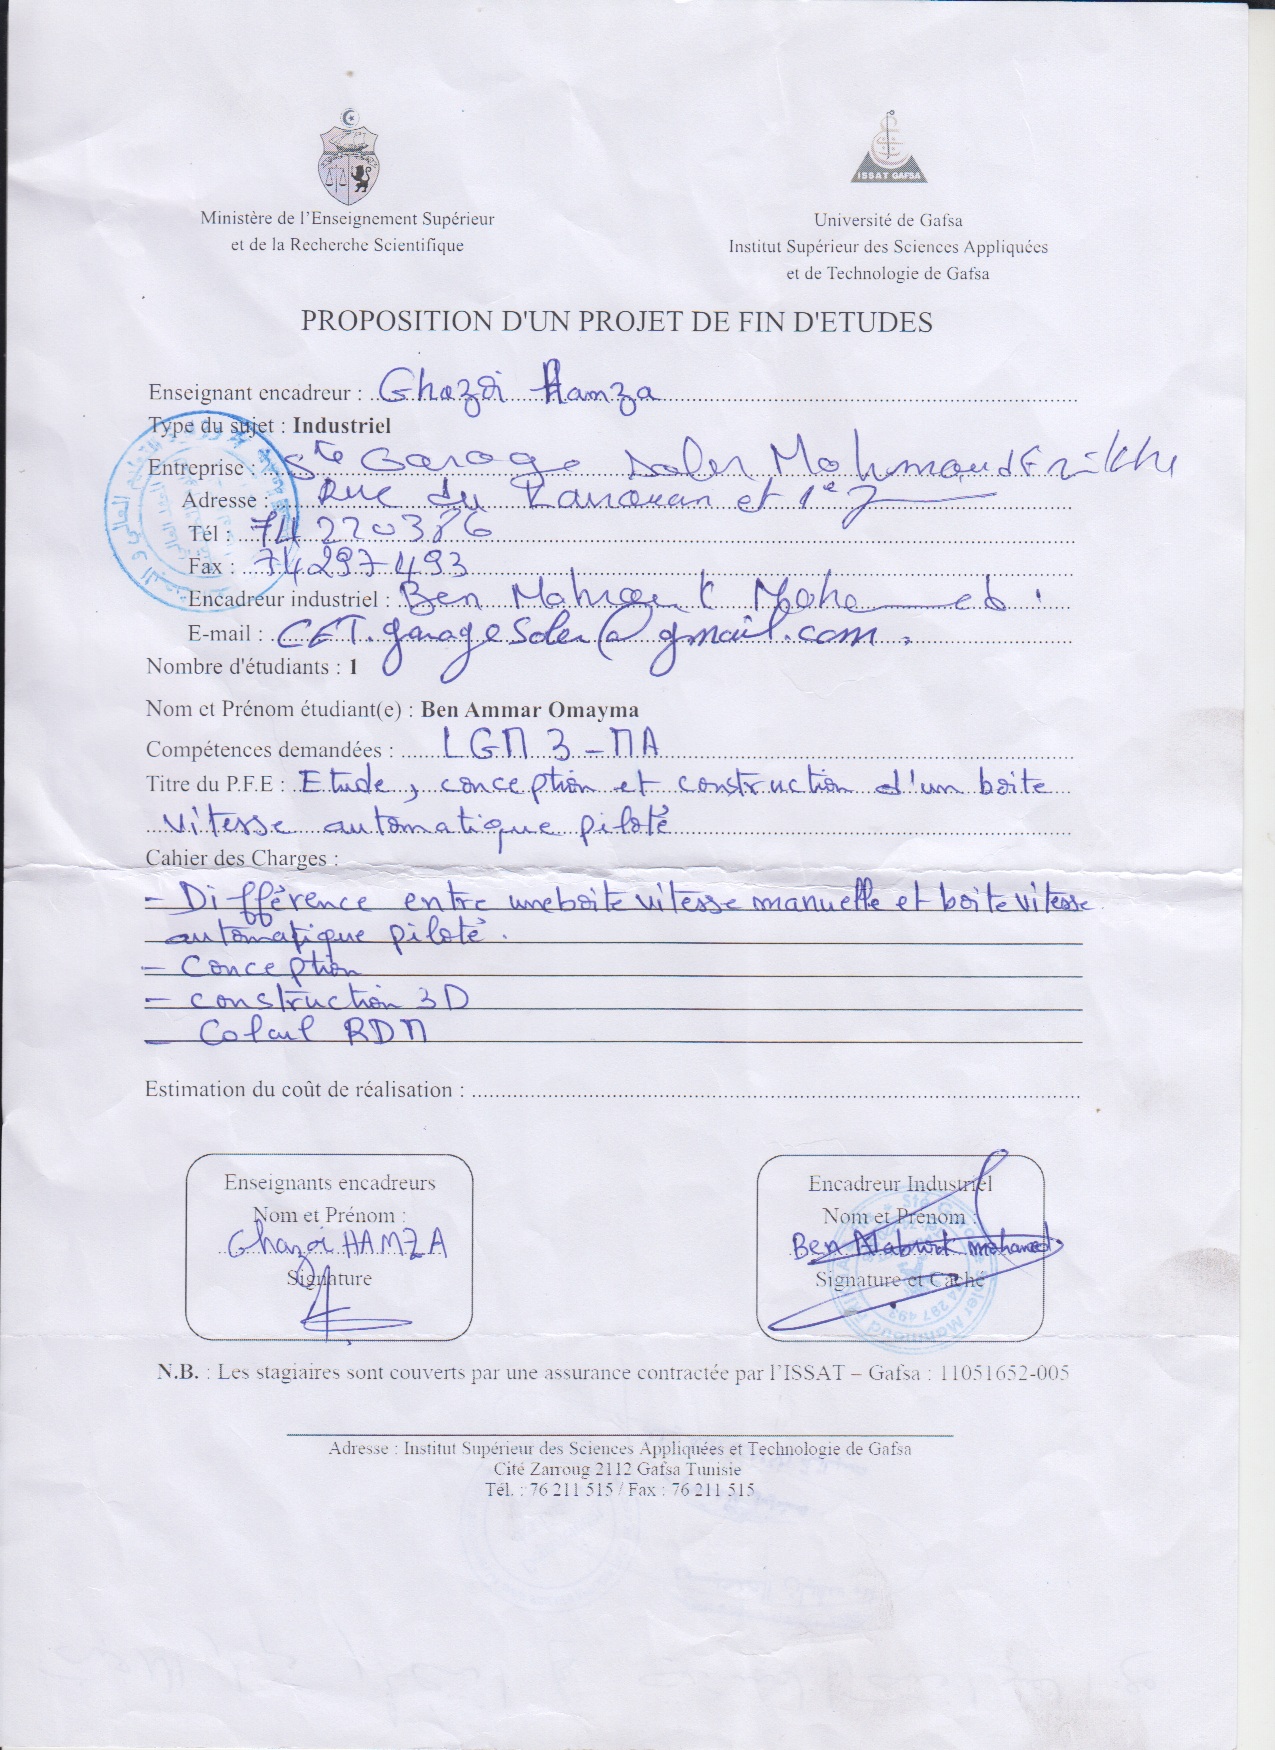 ISSAT GAFSA
Ministère de l'Enseignement Supérieur
et de la Recherche Scientifique
Université de Gafsa
Institut Supérieur des Sciences Appliquées
et de Technologie de Gafsa
PROPOSITION D'UN PROJET DE FIN D'ETUDES
Enseignant encadreur : Ghazoi Hamza
Type du sujet : Industriel
Entreprise : Ste Garage Soler Mahmoud Frikha
Adresse : Rue du Kairouan et 1e
Tél : 74 220 386
Fax : 74 297 493
Encadreur industriel : Ben
E-mail : CET.garagesoler@gmail.com
Nombre d'étudiants : 1
Nom et Prénom étudiant(e) : Ben Ammar Omayma
Compétences demandées : LGM 3 - MA
Titre du P.F.E : Etude, conception et construction d'un boite
vitesse automatique piloté
Cahier des Charges :
- Différence entre une boite vitesse manuelle et boite vitesse
automatique piloté.
- Conception
- construction 3D
- Calcul RDM
Estimation du coût de réalisation :
Enseignants encadreurs
Nom et Prénom :
Ghazoi HAMZA
Signature
Encadreur Industriel
Nom et Prénom :
Ben Mabrouk mohamed
Signature et Caché
N.B. : Les stagiaires sont couverts par une assurance contractée par l'ISSAT – Gafsa : 11051652-005
Adresse : Institut Supérieur des Sciences Appliquées et Technologie de Gafsa
Cité Zarroug 2112 Gafsa Tunisie
Tél. : 76 211 515 / Fax : 76 211 515